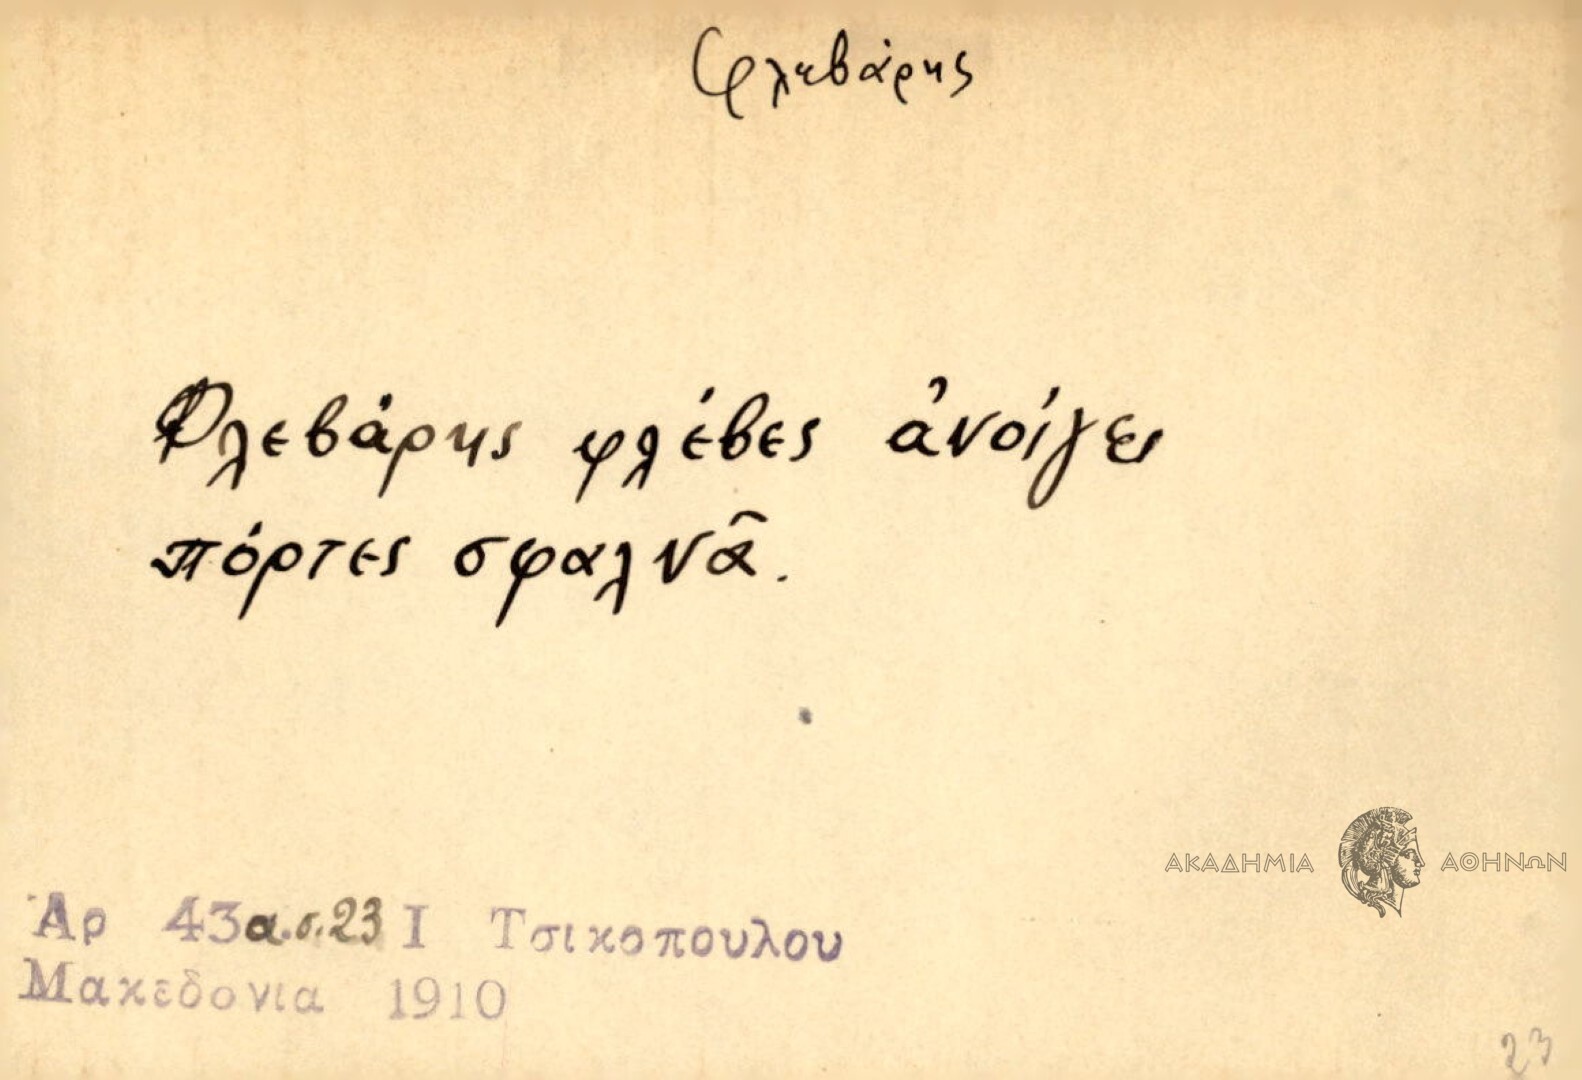 Φλεβάρης
Φλεβάρης φλέβες ἀνοίγει
πόρτες σφαλνᾶ.
ΑΚΑΔΗΜΙΑ ΑΘΗΝΩΝ
Αρ 43α.σ.23 Ι Τσικοπουλου
Μακεδονια 1910
23